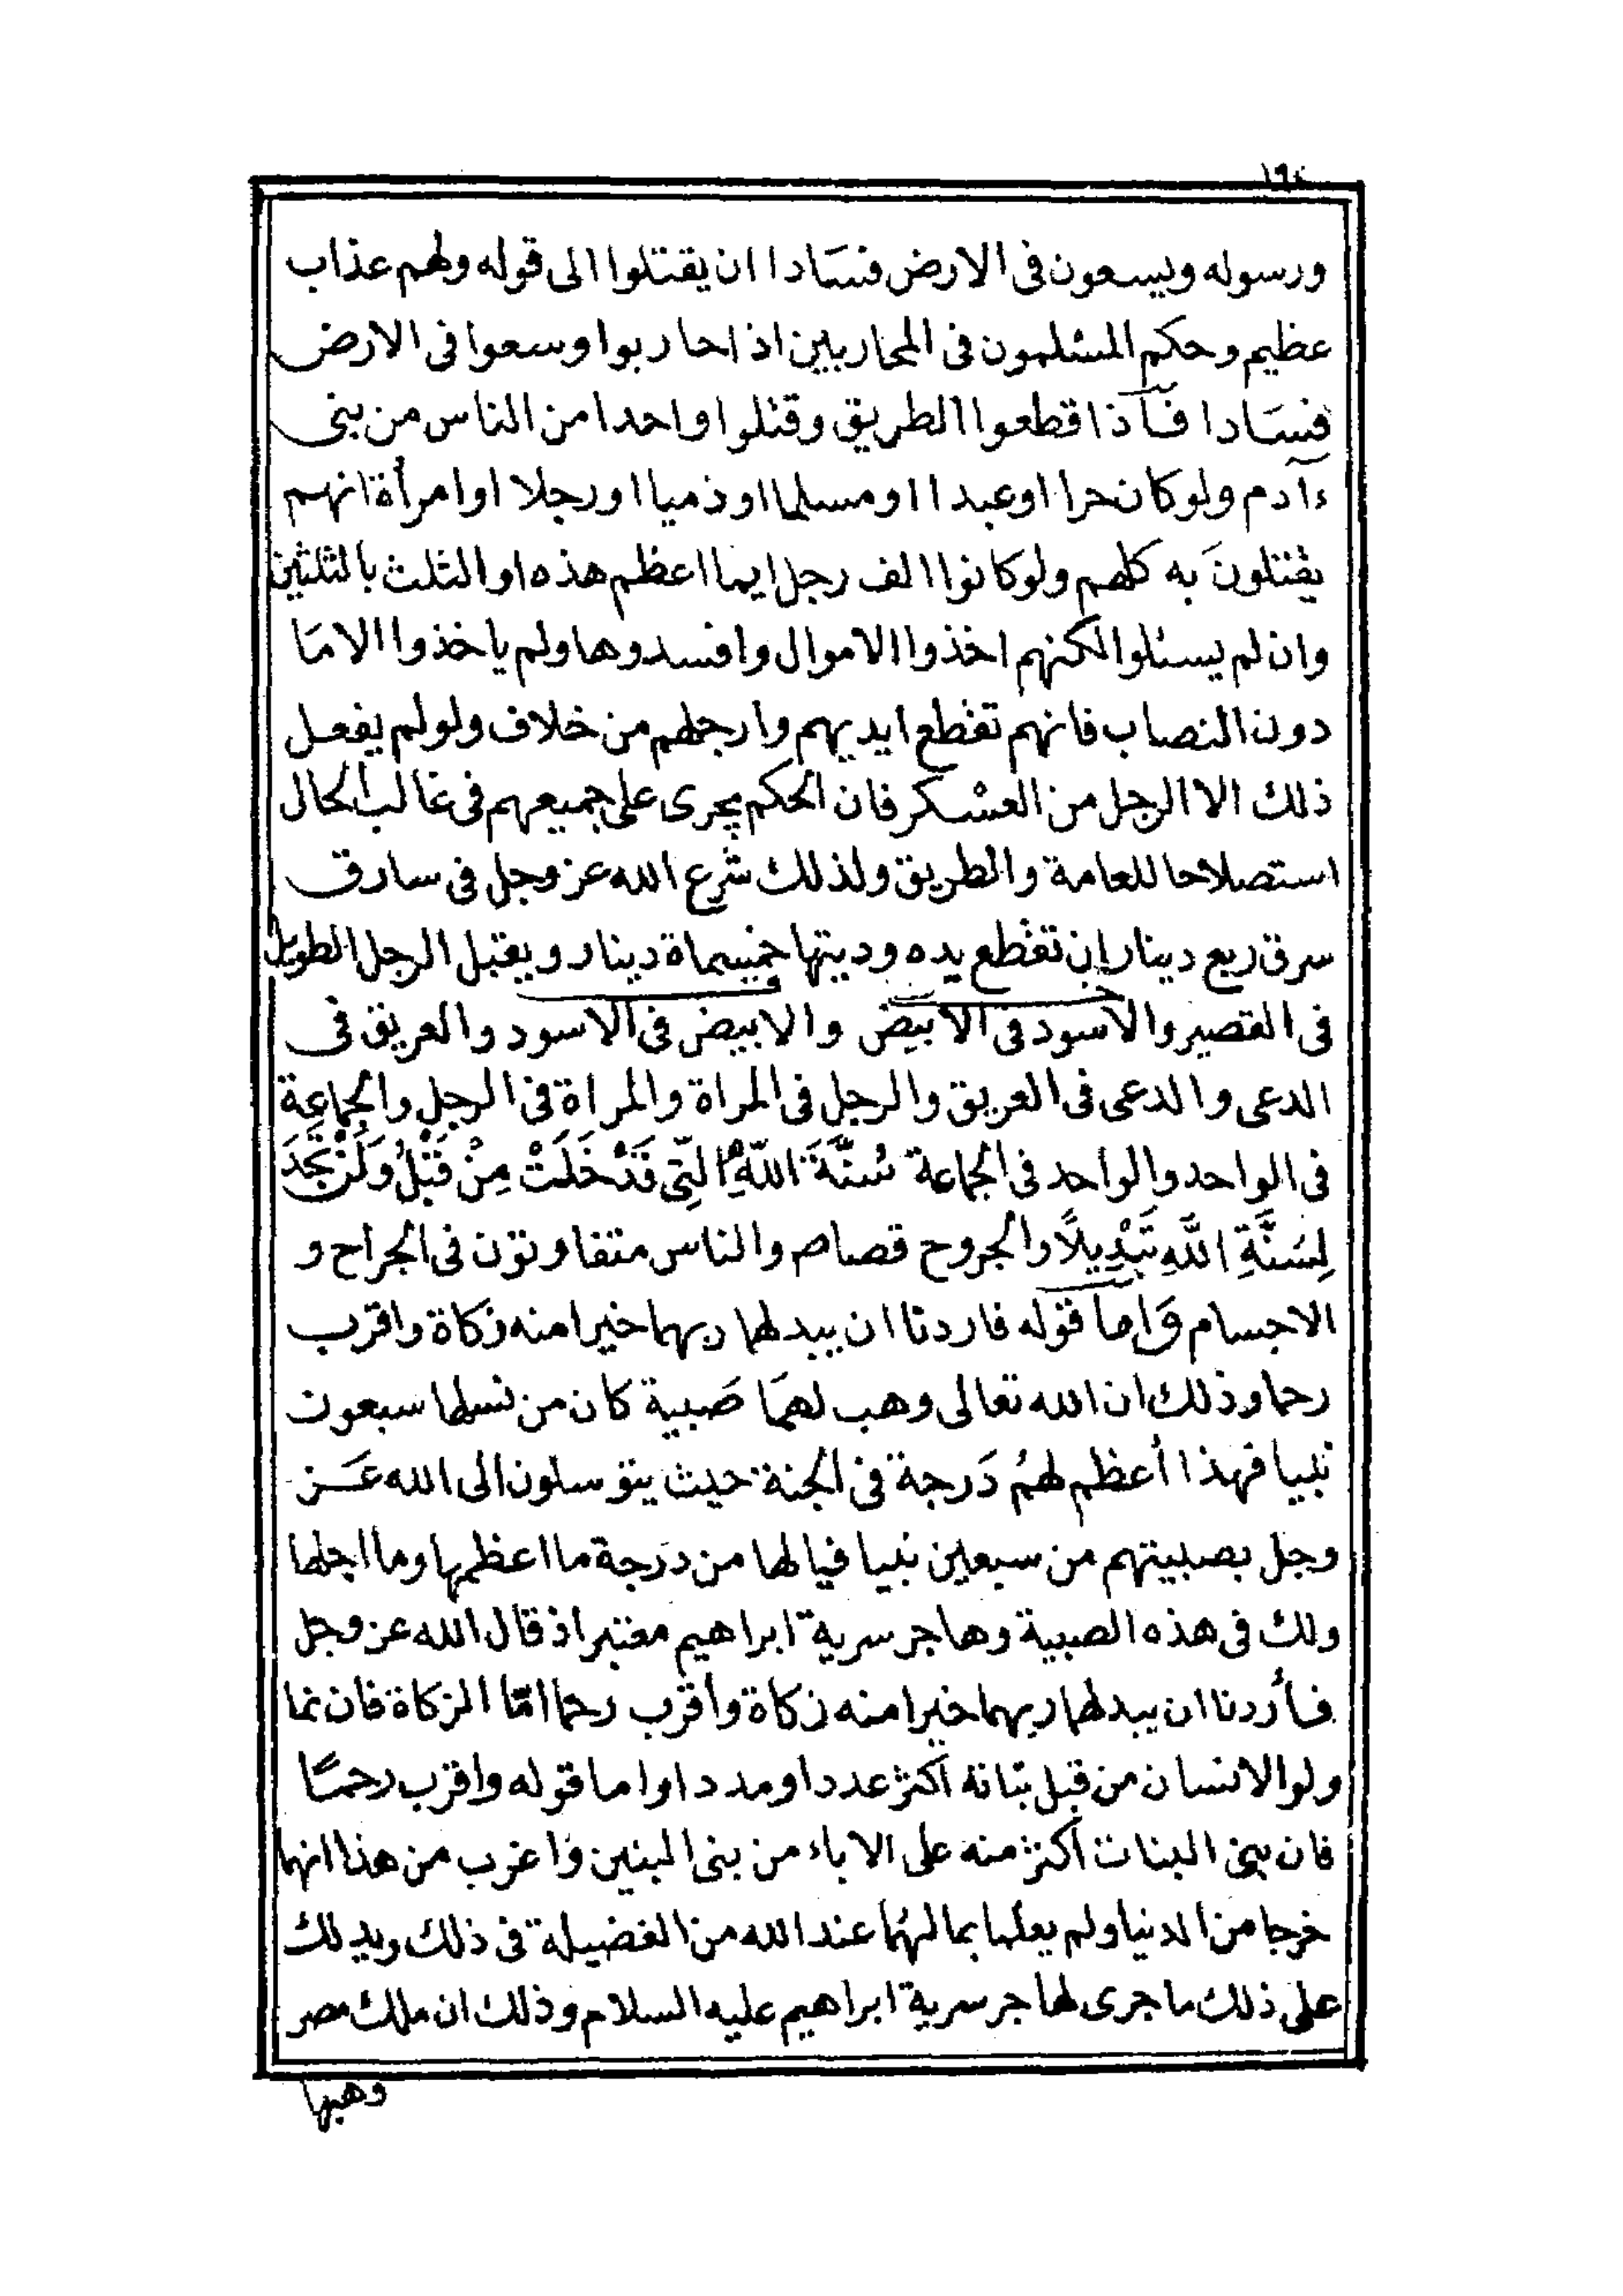 ورسوله ويسعون فى الارض فسادا ان يقتلوا الى قوله ولهم عذاب
عظيم وحكم المسلمون فى المحاربين اذا حاربوا وسعوا فى الارض
فسادا فاذا قطعوا الطريق وقتلوا واحدا من الناس من بنى
ءادم ولو كان حرا او عبدا او مسلما او ذميا او رجلا او امرأة انهم
يقتلون به كلهم ولو كانوا الف رجل ايما اعظم هذه او الثلث بالثلثين
وان لم يسئلوا لكنهم اخذوا الاموال وافسدوها ولم ياخذوا الا ما
دون النصاب فانهم تقطع ايديهم وارجلهم من خلاف ولو لم يفعل
ذلك الا الرجل من العسكر فان الحكم يجرى على جميعهم فى غالب الحال
استصلاحا للعامة والطريق ولذلك شرع الله عز وجل فى سارق
سرق ربع دينار ان تقطع يده وديتها خمسماة دينار ويقتل الرجل الطويل
فى القصير والاسود فى الابيض والابيض فى الاسود والعريق فى
الدعى والدعى فى العريق والرجل فى المراة والمراة فى الرجل والجماعة
فى الواحد والواحد فى الجماعة سُنَّةَ اللَّهِ الَّتِى قَدْ خَلَتْ مِنْ قَبْلُ وَلَنْ تَجِدَ
لِسُنَّةِ اللَّهِ تَبْدِيلًا والجروح قصاص والناس متفاوتون فى الجراح و
الاجسام وَاما قوله فاردنا ان يبدلهما ربهما خيرا منه زكاة واقرب
رحما وذلك ان الله تعالى وهب لهما صَبية كان من نسلها سبعون
نبيا فهذا أعظم لهمُ دَرجة فى الجنة حيث يتوسلون الى الله عَز
وجل بصبيتهم من سبعين نبيا فيالها من درَجة ما اعظمها وما اجلها
ولك فى هذه الصبية وهاجر سرية ابراهيم معتبر اذ قال الله عز وجل
فأردنا ان يبدلهما ربهما خيرا منه زكاة واقرب رحما امّا الزكاة فان نما
ولو الانسان من قبل بناته أكثر عددا ومددا واما قوله واقرب رحمًا
فان بنى البنات أكثر منه على الاباء من بنى البنين واغرب من هذا انهما
خرجا من الدنيا ولم يعلما بما لهُما عند الله من الفضيلة فى ذلك ويدلك
على ذلك ما جرى لهاجر سرية ابراهيم عليه السلام وذلك ان ملك مصر
وهبها